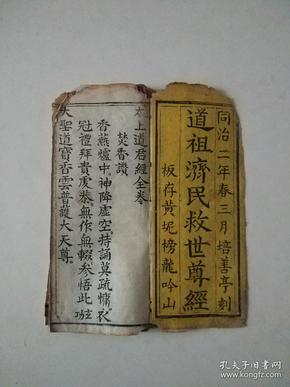 同治二年春三月培善亭刻
道祖濟民救世尊經
板存黄坭榜龍吟山
太上道君經全卷
焚香讚
香爇爐中神降虛空持誦莫疏慵衣
冠禮拜貴虔恭無作無輟參悟此玅功
大聖道寶香雲普護大天尊
孔夫子旧书网